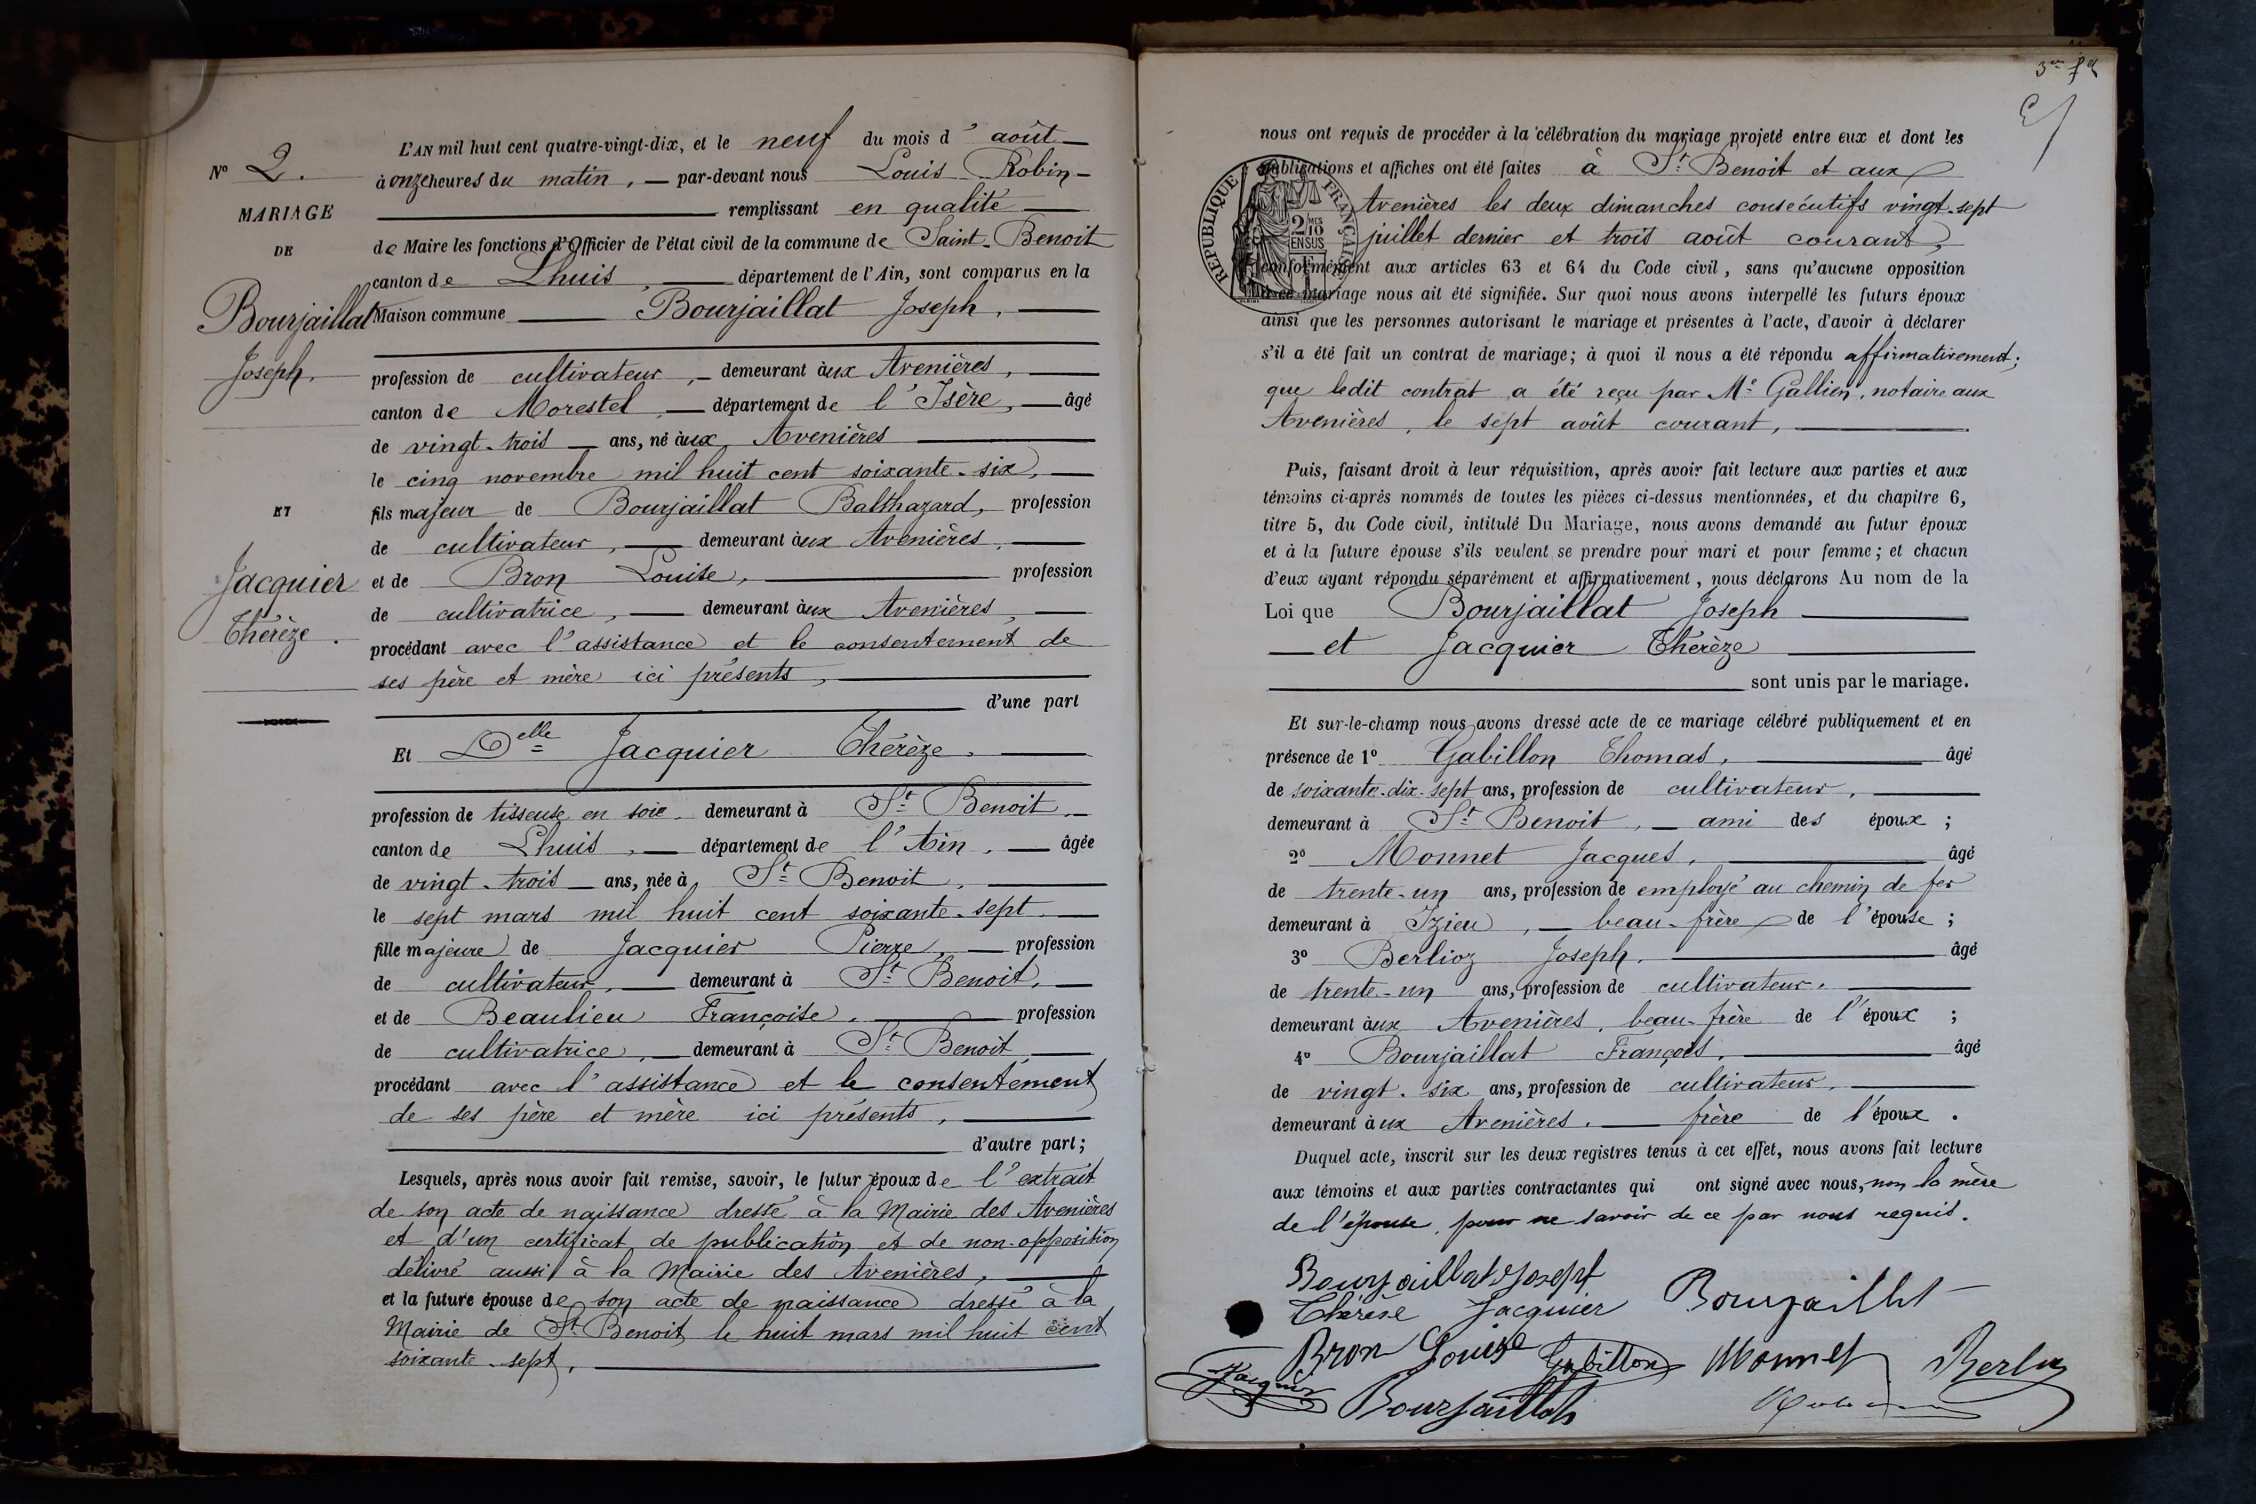 L'AN mil huit cent quatre-vingt-dix, et le neuf du mois d'août
N° 2.
à onze heures du matin, par-devant nous Louis Robin
MARIAGE
remplissant en qualité
DE
de Maire les fonctions d'Officier de l'état civil de la commune de Saint-Benoit
canton de Lhuis, département de l'Ain, sont comparus en la
Bourjaillat
Maison commune Bourjaillat Joseph,
Joseph.
profession de cultivateur, demeurant àux Avenières,
canton de Morestel, département de l'Isère, âgé
de vingt-trois ans, né àux Avenières
le cinq novembre mil huit cent soixante-six,
ET
fils majeur de Bourjaillat Balthazard, profession
de cultivateur, demeurant àux Avenières,
Jacquier
et de Bron Louise, profession
de cultivatrice, demeurant àux Avenières,
Thérèze.
procédant avec l'assistance et le consentement de
ses père et mère ici présents,
d'une part
Et Delle Jacquier Thérèze,
profession de tisseuse en soie, demeurant à St Benoit,
canton de Lhuis, département de l'Ain, âgée
de vingt-trois ans, née à St Benoit,
le sept mars mil huit cent soixante-sept
fille majeure de Jacquier Pierre, profession
de cultivateur, demeurant à St Benoit,
et de Beaulieu Françoise, profession
de cultivatrice, demeurant à St Benoit,
procédant avec l'assistance et le consentement
de ses père et mère ici présents,
d'autre part;
Lesquels, après nous avoir fait remise, savoir, le futur époux de l'extrait
de son acte de naissance dressé à la Mairie des Avenières
et d'un certificat de publication et de non-opposition
délivré aussi à la Mairie des Avenières,
et la future épouse de son acte de naissance dressé à la
Mairie de St Benoit le huit mars mil huit cent
soixante-sept,
nous ont requis de procéder à la célébration du mariage projeté entre eux et dont les
publications et affiches ont été faites à St Benoit et aux
Avenières les deux dimanches consécutifs vingt-sept
juillet dernier et trois août courant,
RÉPUBLIQUE FRANÇAISE
2/10 MES
EN SUS
conformément aux articles 63 et 64 du Code civil, sans qu'aucune opposition
à ce mariage nous ait été signifiée. Sur quoi nous avons interpellé les futurs époux
ainsi que les personnes autorisant le mariage et présentes à l'acte, d'avoir à déclarer
s'il a été fait un contrat de mariage; à quoi il nous a été répondu affirmativement;
que ledit contrat a été reçu par Me Gallien, notaire aux
Avenières, le sept août courant,
Puis, faisant droit à leur réquisition, après avoir fait lecture aux parties et aux
témoins ci-après nommés de toutes les pièces ci-dessus mentionnées, et du chapitre 6,
titre 5, du Code civil, intitulé Du Mariage, nous avons demandé au futur époux
et à la future épouse s'ils veulent se prendre pour mari et pour femme; et chacun
d'eux ayant répondu séparément et affirmativement, nous déclarons Au nom de la
Loi que Bourjaillat Joseph
et Jacquier Thérèze
sont unis par le mariage.
Et sur-le-champ nous avons dressé acte de ce mariage célébré publiquement et en
présence de 1° Gabillon Thomas, âgé
de soixante-dix-sept ans, profession de cultivateur,
demeurant à St Benoit, ami des époux;
2° Monnet Jacques, âgé
de trente-un ans, profession de employé au chemin de fer
demeurant à Izieu, beau-frère de l'épouse;
3° Berlioz Joseph, âgé
de trente-un ans, profession de cultivateur,
demeurant àux Avenières, beau-frère de l'époux;
4° Bourjaillat François, âgé
de vingt-six ans, profession de cultivateur,
demeurant àux Avenières, frère de l'époux.
Duquel acte, inscrit sur les deux registres tenus à cet effet, nous avons fait lecture
aux témoins et aux parties contractantes qui ont signé avec nous, non la mère
de l'épouse, pour ne savoir de ce par nous requis.
Bourjaillat Joseph
Thérèse Jacquier Bourjaillat
Bron Louise Gabillon Monnet Berlioz
Jacquier Bourjaillat Robin